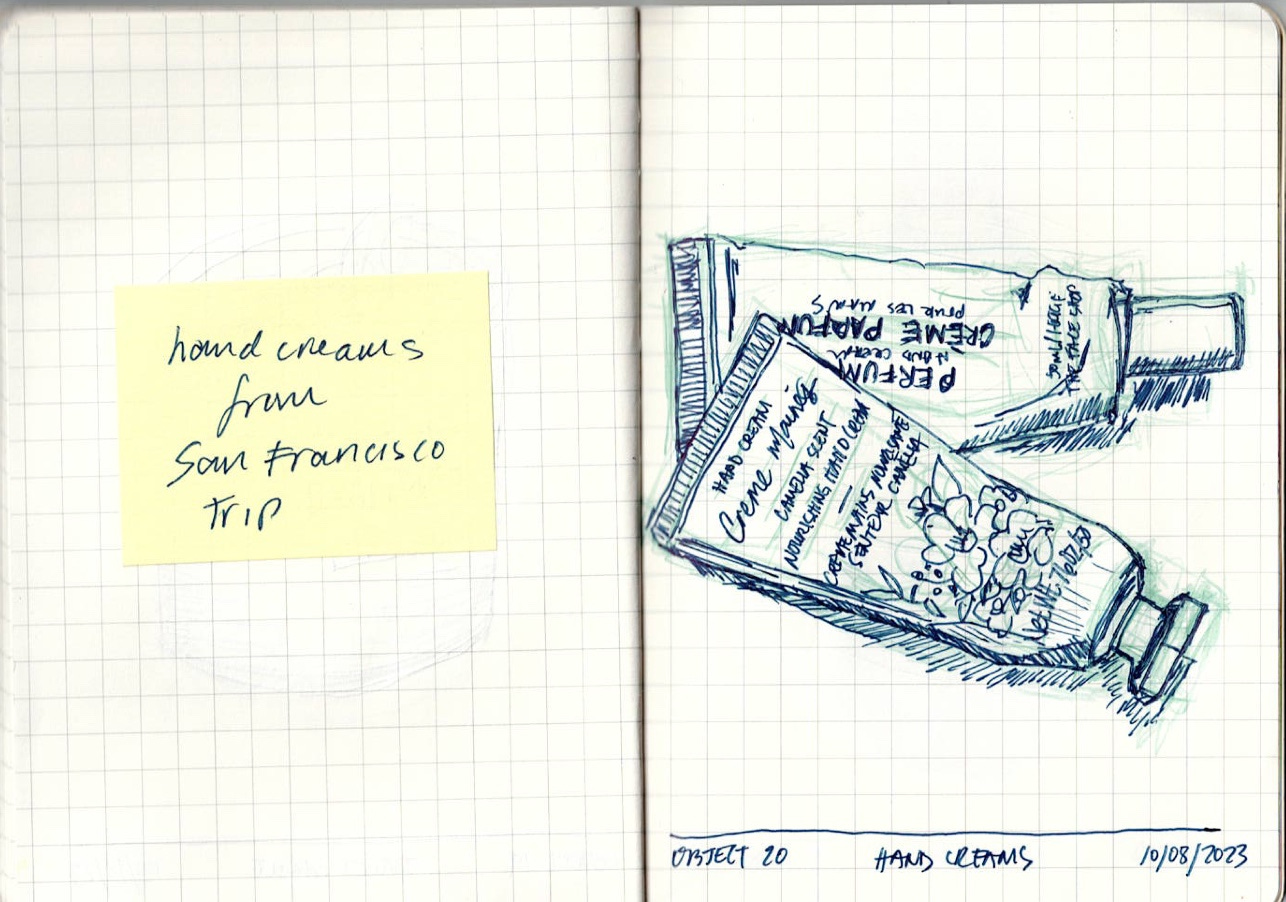 hand creams
from
San Francisco
trip
PERFUM
HAND CREAM
CRÈME PARFUM
POUR LES MAINS
THE FACE SHOP
HAND CREAM
Creme Mains
CAMELIA SCENT
NOURISHING HAND CREAM
CREME MAINS NOURISSANTE
SENTEUR CAMELIA
Net WE. 1.6 OZ,
OBJECT 20
HAND CREAMS
10/08/2023